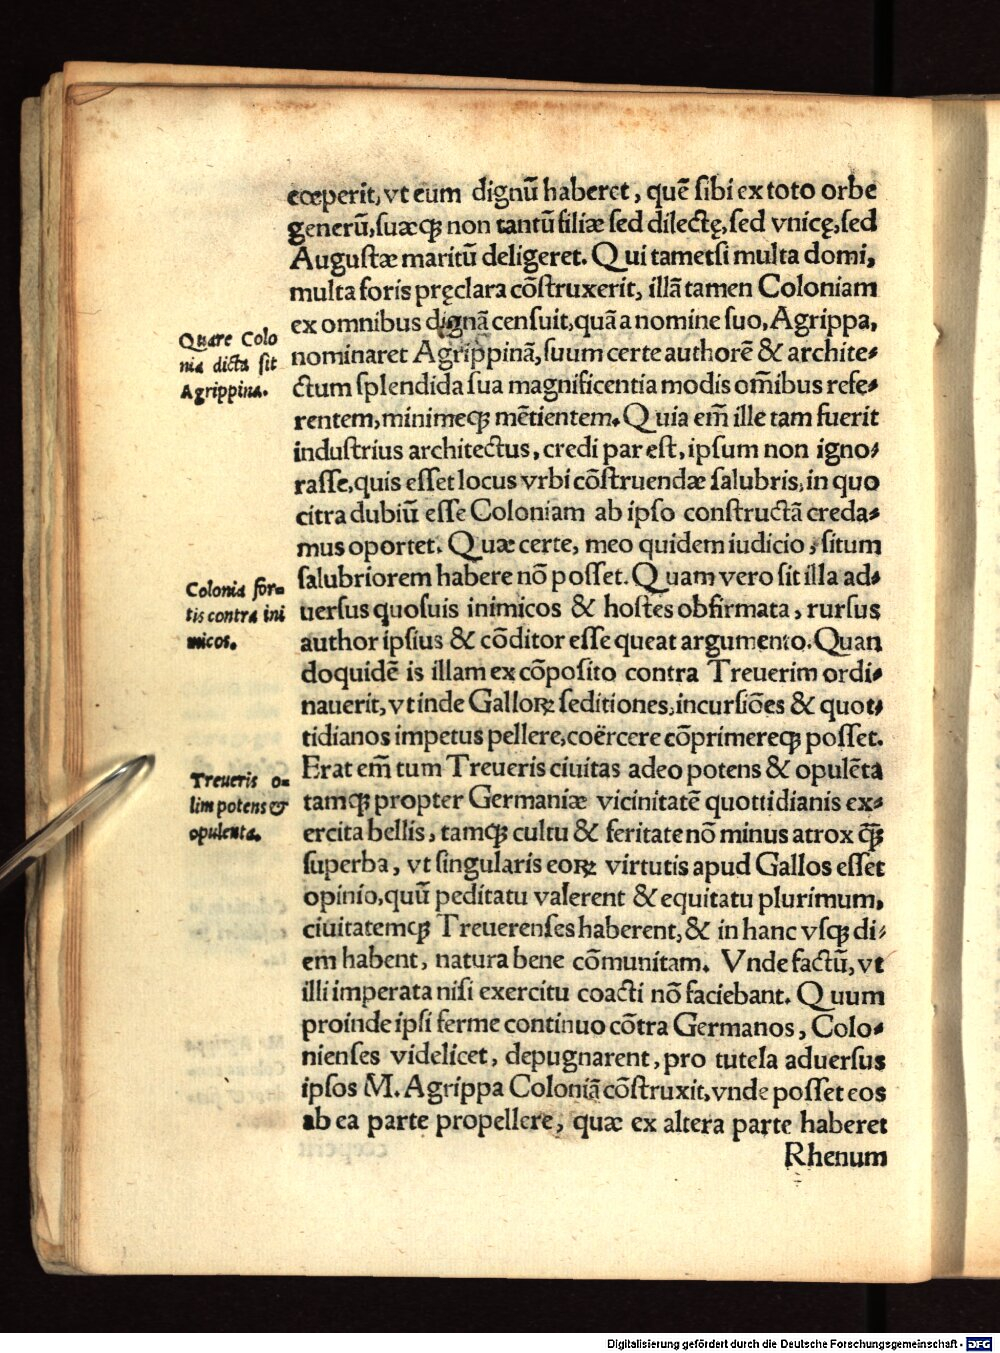 cœperit, vt eum dignū haberet, quē sibi ex toto orbe
generū, suæq́ꝫ non tantū filiæ sed dilectę, sed vnicę, sed
Augustæ maritū deligeret. Qui tametsi multa domi,
multa foris pręclara cōstruxerit, illā tamen Coloniam
ex omnibus dignā censuit, quā a nomine suo, Agrippa,
nominaret Agrippinā, suum certe authorē & archite⸗
ctum splendida sua magnificentia modis om̄ibus refe⸗
rentem, minimeqꝫ mētientem. Quia em̄ ille tam fuerit
industrius architectus, credi par est, ipsum non igno⸗
rasse, quis esset locus vrbi cōstruendæ salubris, in quo
citra dubiū esse Coloniam ab ipso constructā creda⸗
mus oportet. Quæ certe, meo quidem iudicio, situm
salubriorem habere nō posset. Quam vero sit illa ad⸗
uersus quosuis inimicos & hostes obfirmata, rursus
author ipsius & cōditor esse queat argumento. Quan
doquidē is illam ex cōposito contra Treuerim ordi⸗
nauerit, vt inde Galloꝝ seditiones, incursiōes & quot⸗
tidianos impetus pellere, coërcere cōprimereqꝫ posset.
Erat em̄ tum Treueris ciuitas adeo potens & opulēta
tamqꝫ propter Germaniæ vicinitatē quottidianis ex⸗
ercita bellis, tamqꝫ cultu & feritate nō minus atrox q̄ꝫ
superba, vt singularis eoꝝ virtutis apud Gallos esset
opinio, quū peditatu valerent & equitatu plurimum,
ciuitatemqꝫ Treuerenses haberent, & in hanc vsqꝫ di⸗
em habent, natura bene cōmunitam. Vnde factū, vt
illi imperata nisi exercitu coacti nō faciebant. Quum
proinde ipsi ferme continuo cōtra Germanos, Colo⸗
nienses videlicet, depugnarent, pro tutela aduersus
ipsos M. Agrippa Coloniā cōstruxit, vnde posset eos
ab ea parte propellere, quæ ex altera parte haberet
Rhenum
Quare Colo
nia dicta sit
Agrippina.
Colonia for⸗
tis contra ini
micos.
Treueris o⸗
lim potens &
opulenta.
Digitalisierung gefördert durch die Deutsche Forschungsgemeinschaft - DFG